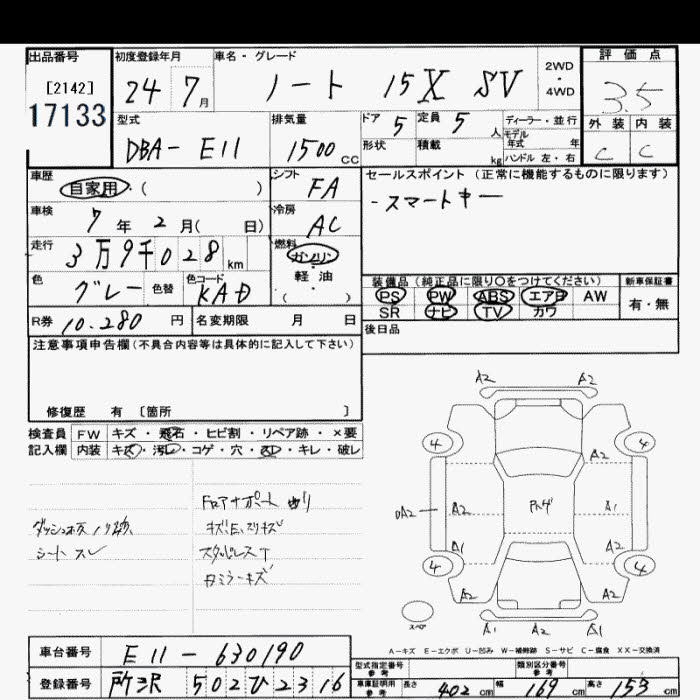 出品番号
[2142]
17133
初度登録年月
24 7月
車名・グレード
ノート 15X SV
2WD
・
4WD
評価点
3.5
外装 内装
C C
型式
DBA-E11
排気量
1500cc
ドア 5
定員 5人
形状
積載 kg
ディーラー・並行
モデル
年式 年
ハンドル 左・右
車歴
自家用・( )
シフト
FA
セールスポイント(正常に機能するものに限ります)
-スマートキー
車検
7年2月( 日)
冷房
AC
走行
3万9千028km
燃料
ガソリン
・
軽油
( )
色
グレー
色替
色コード
KAD
装備品(純正品に限り○をつけてください)
PS PW ABS エアB AW
SR ナビ TV カワ
新車保証書
有・無
R券 10.280円
名変期限 月 日
後日品
注意事項申告欄(不具合内容等は具体的に記入して下さい)
修復歴 有 [箇所 ]
検査員
記入欄
FW キズ・飛石・ヒビ割・リペア跡・×要
内装 キズ・汚レ・コゲ・穴・スレ・キレ・破レ
シート スレ
キズE、スリキズ
スタッドレスT
A2 A2
4 4
A2
UA2 A2 A1
A1 A2
4 4
A2 A2
A1 A2 A1
スペア
A-キズ E-エクボ U-凹み W-補修跡 S-サビ C-腐食 XX-交換済
車台番号 E11-630190
登録番号 所沢 502ひ2316
型式指定番号
参考
類別区分番号
参考
車庫証明用
参考
長さ 402cm 幅 169cm 高さ 153cm